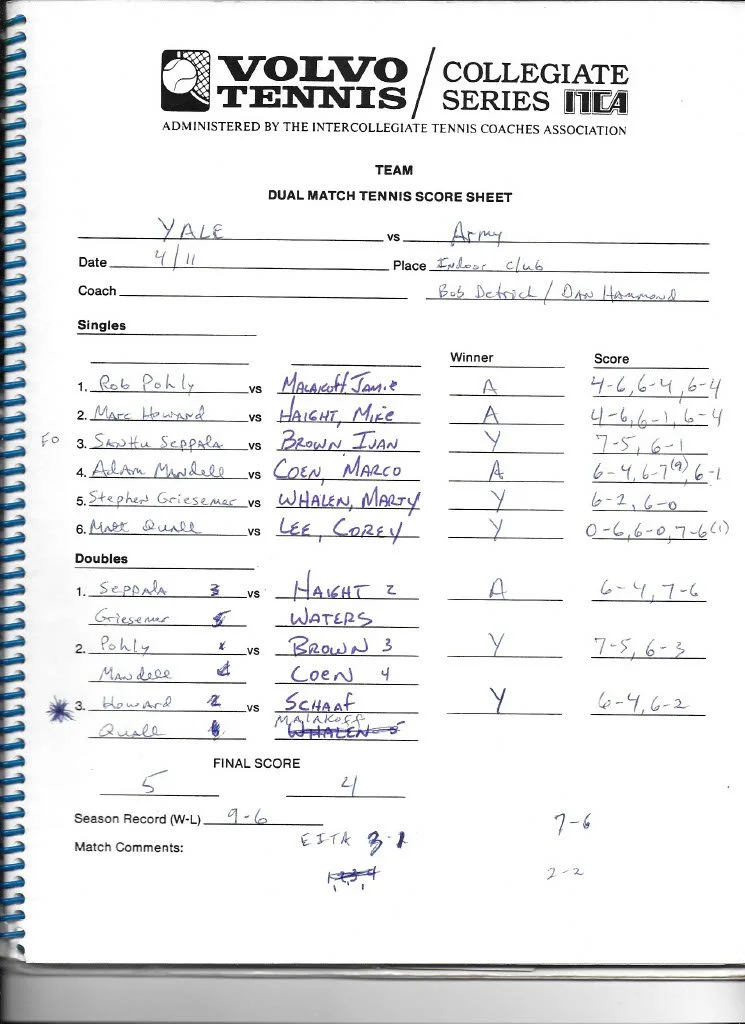 VOLVO TENNIS / COLLEGIATE SERIES ITCA
ADMINISTERED BY THE INTERCOLLEGIATE TENNIS COACHES ASSOCIATION
TEAM
DUAL MATCH TENNIS SCORE SHEET
YALE vs Army
Date 4/11 Place Indoor Club
Coach Bob Detrich / Dan Hammond
Singles
Winner Score
1. Rob Pohly vs Malakoff, Jamie A 4-6, 6-4, 6-4
2. Marc Howard vs HAIGHT, Mike A 4-6, 6-1, 6-4
FO 3. Santtu Seppala vs BROWN, IVAN Y 7-5, 6-1
4. Adam Mandell vs COEN, MARCO A 6-4, 6-7(9), 6-1
5. Stephen Griesemer vs WHALEN, MARTY Y 6-2, 6-0
6. Matt Quall vs LEE, COREY Y 0-6, 6-0, 7-6(1)
Doubles
1. Seppala 3 vs HAIGHT 2 A 6-4, 7-6
Griesemer 5 WATERS
2. Pohly 1 vs BROWN 3 Y 7-5, 6-3
Mandell 4 COEN 4
3. Howard 2 vs SCHAAF Y 6-4, 6-2
Malakoff
Quall 6 WHALEN 5
FINAL SCORE
5 4
Season Record (W-L) 9-6
7-6
Match Comments: EITA 3-1
1,2,3,4
2-2